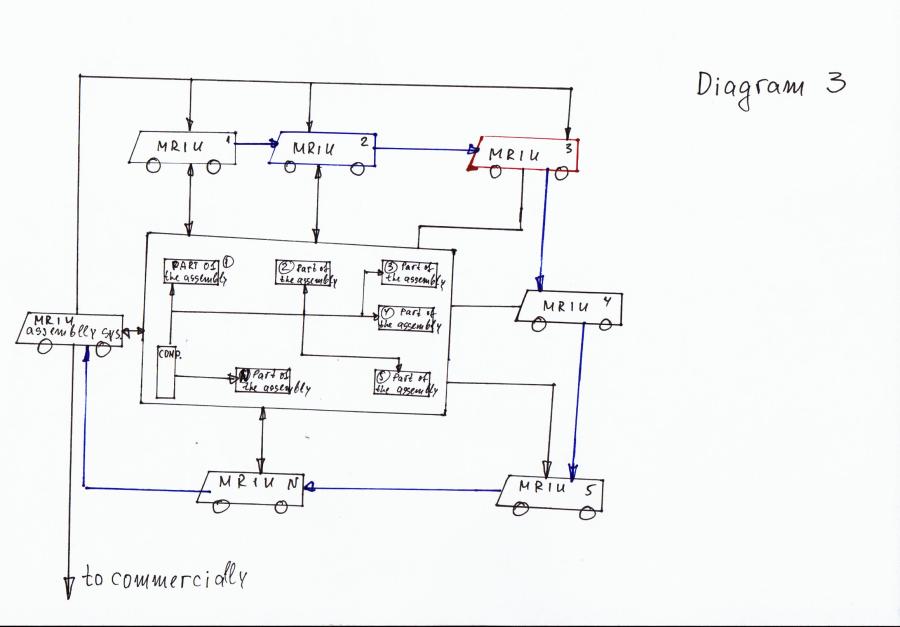 Diagram 3
MRIU 1
MRIU 2
MRIU 3
PART OF ①
the assembly
② Part of
the assembly
③ Part of
the assembly
MRIU 4
④ Part of
the assembly
MRIU
assemblly sys.
COMP.
Ⓝ Part of
the assembly
⑤ Part of
the assembly
MRIU N
MRIU 5
to commercially